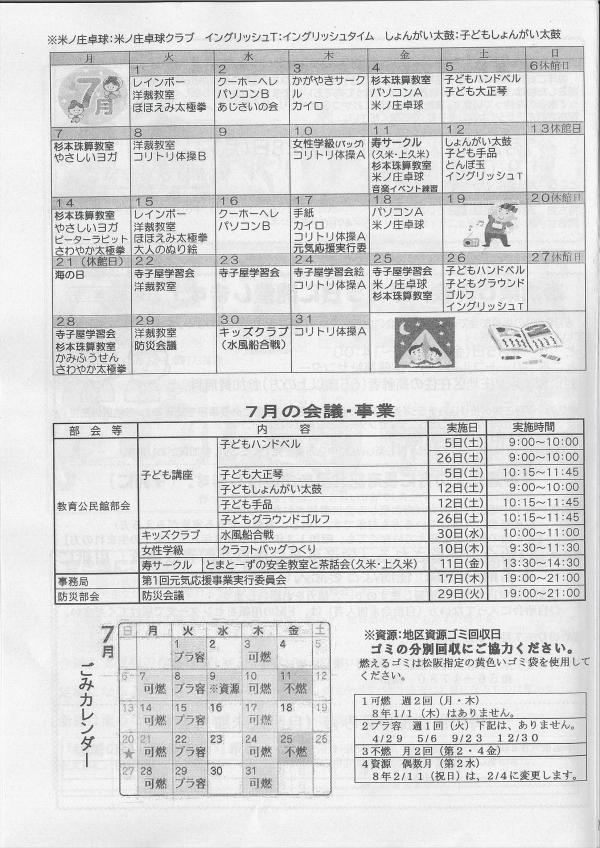 ※米ノ庄卓球:米ノ庄卓球クラブ イングリッシュT:イングリッシュタイム しょんがい太鼓:子どもしょんがい太鼓
月 火 水 木 金 土 日
7月
1
レインボー
洋裁教室
ほほえみ太極拳
2
クーホーヘレ
パソコンB
あじさいの会
3
かがやきサークル
カイロ
4
杉本珠算教室
パソコンA
米ノ庄卓球
5
子どもハンドベル
子ども大正琴
6 休館日
7
杉本珠算教室
やさしいヨガ
8
洋裁教室
コリトリ体操B
9
10
女性学級(バッグ)
コリトリ体操A
11
寿サークル
(久米・上久米)
杉本珠算教室
米ノ庄卓球
音楽イベント練習
12
しょんがい太鼓
子ども手品
とんぼ玉
イングリッシュT
13休館日
14
杉本珠算教室
やさしいヨガ
ピーターラビット
さわやか太極拳
15
レインボー
洋裁教室
ほほえみ太極拳
大人のぬり絵
16
クーホーヘレ
パソコンB
17
手紙
カイロ
コリトリ体操A
元気応援実行委
18
パソコンA
米ノ庄卓球
19
20休館日
21(休館日)
海の日
22
寺子屋学習会
洋裁教室
23
寺子屋学習会
24
寺子屋学習会絵
コリトリ体操A
25
寺子屋学習会
米ノ庄卓球
杉本珠算教室
26
子どもハンドベル
子どもグラウンド
ゴルフ
イングリッシュT
27休館日
28
寺子屋学習会
杉本珠算教室
かみふうせん
さわやか太極拳
29
洋裁教室
防災会議
30
キッズクラブ
(水風船合戦)
31
コリトリ体操A
7月の会議・事業
部会等 内容 実施日 実施時間
教育公民館部会 子ども講座 子どもハンドベル 5日(土) 9:00~10:00
26日(土) 9:00~10:00
子ども大正琴 5日(土) 10:15~11:45
子どもしょんがい太鼓 12日(土) 9:00~10:00
子ども手品 12日(土) 10:15~11:45
子どもグラウンドゴルフ 26日(土) 10:15~11:45
キッズクラブ 水風船合戦 30日(水) 10:00~11:00
女性学級 クラフトバッグつくり 10日(木) 9:30~11:30
寿サークル とまとーずの安全教室と茶話会(久米・上久米) 11日(金) 13:30~14:30
事務局 第1回元気応援事業実行委員会 17日(木) 19:00~21:00
防災部会 防災会議 29日(火) 19:00~21:00
7月 ごみカレンダー
日 月 火 水 木 金 土
1 2 3 4 5
プラ容 可燃
6 7 8 9 10 11 12
可燃 プラ容 ※資源 可燃 不燃
13 14 15 16 17 18 19
可燃 プラ容 可燃
20 21 22 23 24 25 26
★ 可燃 プラ容 可燃 不燃
27 28 29 30 31
可燃 プラ容 可燃
※資源:地区資源ゴミ回収日
ゴミの分別回収にご協力ください。
燃えるゴミは松阪指定の黄色いゴミ袋を使用して
ください。
1可燃 週2回(月・木)
8年1/1(木)はありません。
2プラ容 週1回(火)下記は、ありません。
4/29 5/6 9/23 12/30
3不燃 月2回(第2・4金)
4資源 偶数月(第2水)
8年2/11(祝日)は、2/4に変更します。